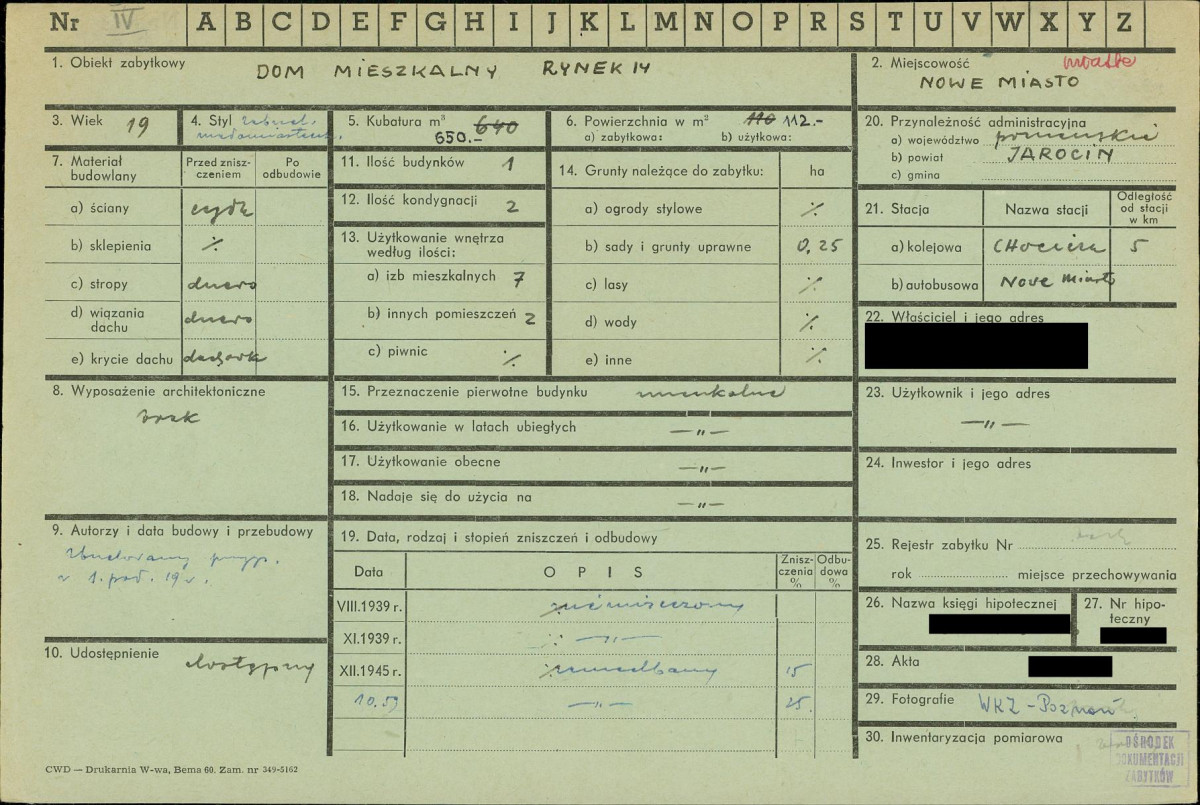 Nr IV A B C D E F G H I J K L M N O P R S T U V W X Y Z
1. Obiekt zabytkowy DOM MIESZKALNY RYNEK 14
2. Miejscowość miasto
NOWE MIASTO
3. Wiek 19
4. Styl zabud.
małomiasteczk.
5. Kubatura m³ 640
650.-
6. Powierzchnia w m² 110 112.-
a) zabytkowa: b) użytkowa:
20. Przynależność administracyjna
a) województwo poznańskie
b) powiat JAROCIN
c) gmina
7. Materiał budowlany
Przed znisz-
czeniem
Po
odbudowie
a) ściany cegła
b) sklepienia ⁒
c) stropy drewno
d) wiązania
dachu drewno
e) krycie dachu dachówka
11. Ilość budynków 1
12. Ilość kondygnacji 2
13. Użytkowanie wnętrza
według ilości:
a) izb mieszkalnych 7
b) innych pomieszczeń 2
c) piwnic ⁒
14. Grunty należące do zabytku: ha
a) ogrody stylowe ⁒
b) sady i grunty uprawne 0,25
c) lasy ⁒
d) wody ⁒
e) inne ⁒
21. Stacja Nazwa stacji
Odległość
od stacji
w km
a) kolejowa CHocicza 5
b) autobusowa Nowe Miasto
22. Właściciel i jego adres
8. Wyposażenie architektoniczne
brak
15. Przeznaczenie pierwotne budynku mieszkalne
16. Użytkowanie w latach ubiegłych —„—
17. Użytkowanie obecne —„—
18. Nadaje się do użycia na —„—
23. Użytkownik i jego adres
—„—
24. Inwestor i jego adres
9. Autorzy i data budowy i przebudowy
Zbudowany przyp.
w 1. poł. 19 w.
19. Data, rodzaj i stopień zniszczeń i odbudowy
Data OPIS
Znisz-
czenia
%
Odbu-
dowa
%
VIII.1939 r. nie niszczony
XI.1939 r. —„—
XII.1945 r. zaniedbany 15
10.59 —„— 25.
10. Udostępnienie dostępny
25. Rejestr zabytku Nr
rok miejsce przechowywania
26. Nazwa księgi hipotecznej
27. Nr hipo-
teczny
28. Akta
29. Fotografie WKZ-Poznań
30. Inwentaryzacja pomiarowa
OŚRODEK
DOKUMENTACJI
ZABYTKÓW
CWD — Drukarnia W-wa, Bema 60. Zam. nr 349-5162